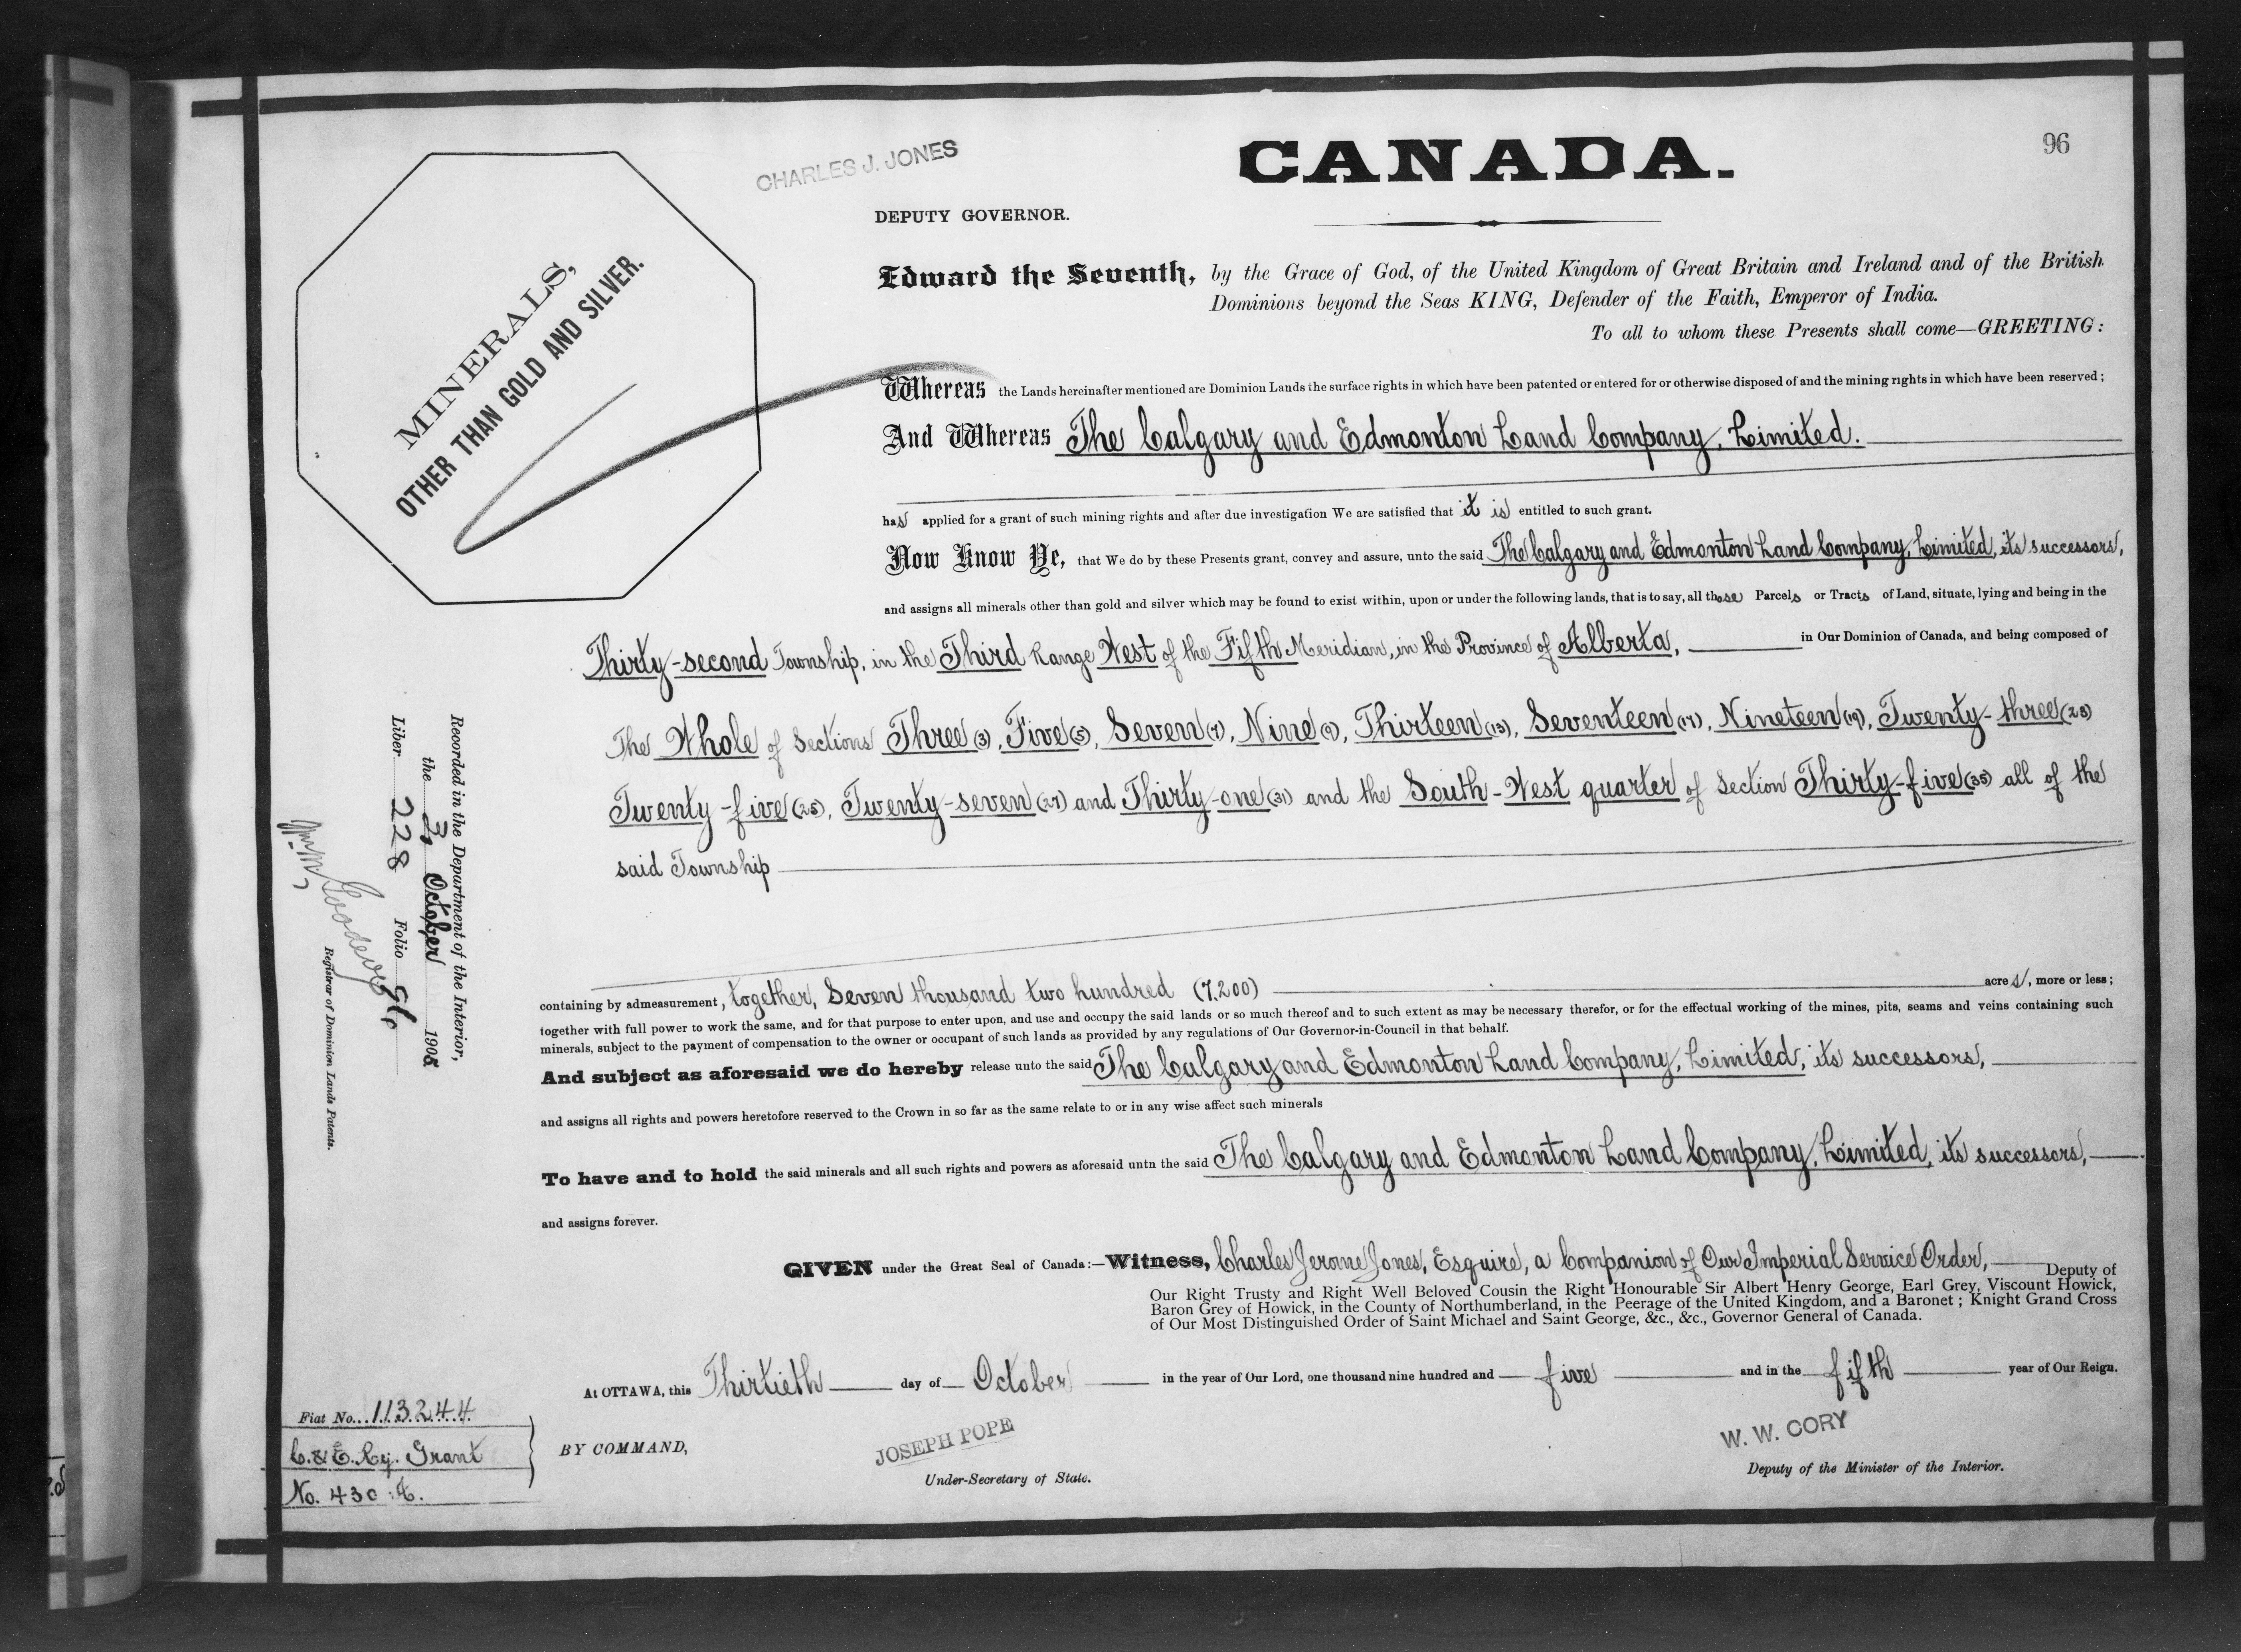 96
CHARLES J. JONES
CANADA.
DEPUTY GOVERNOR.
MINERALS,
OTHER THAN GOLD AND SILVER.
Edward the Seventh, by the Grace of God, of the United Kingdom of Great Britain and Ireland and of the British
Dominions beyond the Seas KING, Defender of the Faith, Emperor of India.
To all to whom these Presents shall come—GREETING:
Whereas the Lands hereinafter mentioned are Dominion Lands the surface rights in which have been patented or entered for or otherwise disposed of and the mining rights in which have been reserved;
And Whereas The Calgary and Edmonton Land Company, Limited.
has applied for a grant of such mining rights and after due investigation We are satisfied that it is entitled to such grant.
Now Know Ye, that We do by these Presents grant, convey and assure, unto the said The Calgary and Edmonton Land Company, Limited, its successors,
and assigns all minerals other than gold and silver which may be found to exist within, upon or under the following lands, that is to say, all those Parcels or Tracts of Land, situate, lying and being in the
Thirty-second Township, in the Third Range West of the Fifth Meridian, in the Province of Alberta, in Our Dominion of Canada, and being composed of
The Whole of Sections Three (3), Five (5), Seven (7), Nine (9), Thirteen (13), Seventeen (17), Nineteen (19), Twenty-three (23)
Twenty-five (25), Twenty-seven (27) and Thirty-one (31) and the South-West quarter of Section Thirty-five (35) all of the
said Township
containing by admeasurement, together, Seven thousand two hundred (7,200) acres, more or less;
together with full power to work the same, and for that purpose to enter upon, and use and occupy the said lands or so much thereof and to such extent as may be necessary therefor, or for the effectual working of the mines, pits, seams and veins containing such
minerals, subject to the payment of compensation to the owner or occupant of such lands as provided by any regulations of Our Governor-in-Council in that behalf.
And subject as aforesaid we do hereby release unto the said The Calgary and Edmonton Land Company, Limited, its successors,
and assigns all rights and powers heretofore reserved to the Crown in so far as the same relate to or in any wise affect such minerals
To have and to hold the said minerals and all such rights and powers as aforesaid untn the said The Calgary and Edmonton Land Company, Limited, its successors,
and assigns forever.
GIVEN under the Great Seal of Canada:—Witness, Charles Jerome Jones, Esquire, a Companion of Our Imperial Service Order, Deputy of
Our Right Trusty and Right Well Beloved Cousin the Right Honourable Sir Albert Henry George, Earl Grey, Viscount Howick,
Baron Grey of Howick, in the County of Northumberland, in the Peerage of the United Kingdom, and a Baronet; Knight Grand Cross
of Our Most Distinguished Order of Saint Michael and Saint George, &c., &c., Governor General of Canada.
At OTTAWA, this Thirtieth day of October in the year of Our Lord, one thousand nine hundred and five and in the fifth year of Our Reign.
BY COMMAND,
JOSEPH POPE
Under-Secretary of State.
W. W. CORY
Deputy of the Minister of the Interior.
Recorded in the Department of the Interior,
the 3 October 1905
Liber 228 Folio 96
Registrar of Dominion Lands Patents.
Fiat No. 113244
C. & E. Ry. Grant
No. 430